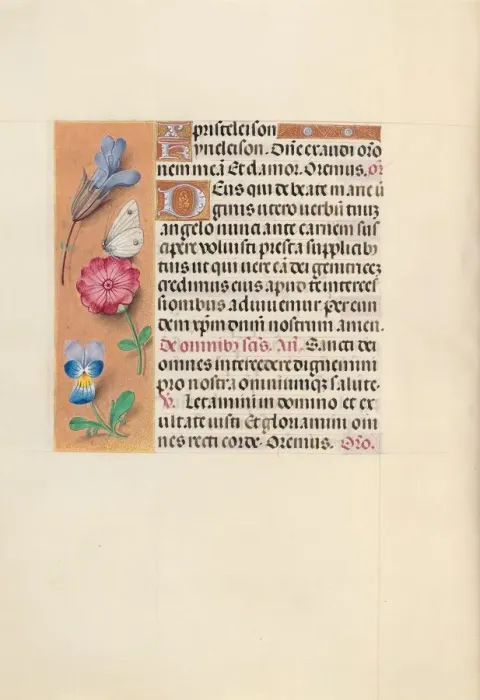 Xpristeleison
kyrieleison. Dn̄e exaudi or̄o
nem meā Et clamor. Oremus. or̄
DEus qui de beate marie ū
ginis utero uerbū tuuȝ
angelo nunciante carnem sus
cipere voluisti presta supplicibꝯ
tuis ut qui uere eā dei genitriceȝ
credimus eius apud te interces
sionibus adiuuemur per eun
dem xp̄m dominū nostrum amen.
De omnibꝯ sc̄is. An̄. Sancti dei
omnes intercedere dignemini
pro nostra omniumqꝫ salute.
V. Letamini in domino et ex
ultate iusti Et gloriamini om
nes recti corde. Oremus. Or̄o.